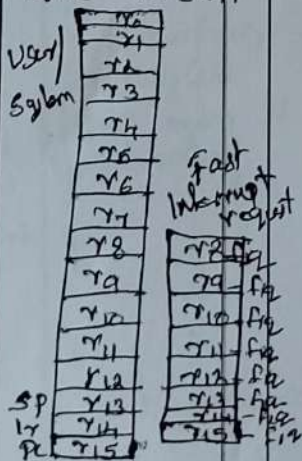 User/
System
r0
r1
r2
r3
r4
r5
r6
r7
r8
r9
r10
r11
r12
sp r13
lr r14
pc r15
Fast
Interrupt
request
r8_fiq
r9_fiq
r10_fiq
r11_fiq
r12_fiq
r13_fiq
r14_fiq
r15_fiq